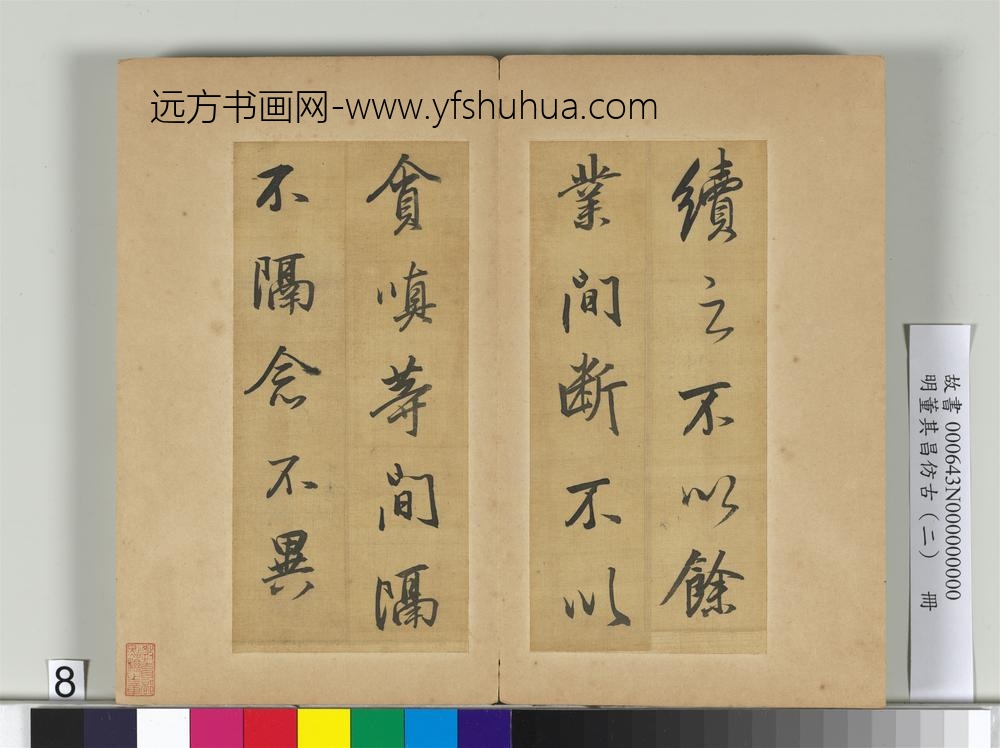 远方书画网-www.yfshuhua.com
續之不以餘
業間斷不以
貪嗔等間隔
不隔念不異
故書 000643N000000000
明董其昌仿古（二） 冊
8